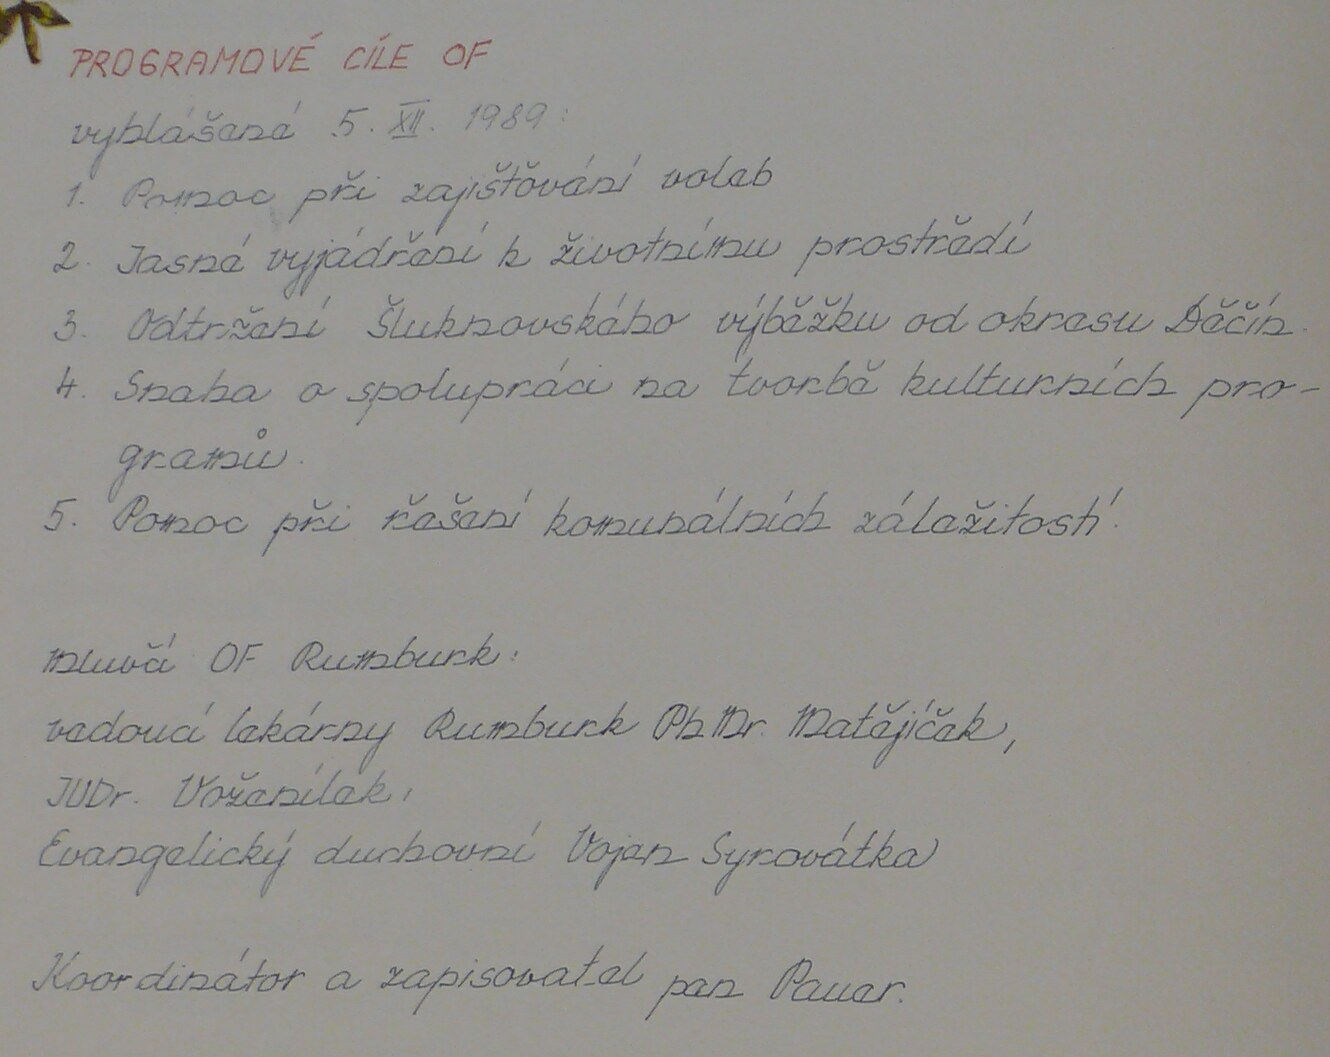 PROGRAMOVÉ CÍLE OF
vyhlášené 5. XII. 1989:
1. Pomoc při zajišťování voleb
2. Jasné vyjádření k životnímu prostředí
3. Odtržení Šluknovského výběžku od okresu Děčín.
4. Snaha o spolupráci na tvorbě kulturních pro-
gramů.
5. Pomoc při řešení komunálních záležitostí.
mluvčí OF Rumburk:
vedoucí lekárny Rumburk PhMr. Matějíček,
JUDr. Voženílek,
Evangelický duchovní Vojen Syrovátka
Koordinátor a zapisovatel pan Pauer.